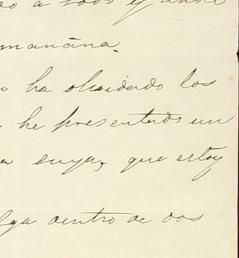 a todo y
mañana.
ha olvidado los
he presentado un
a suya, que estoy
lga dentro de dos